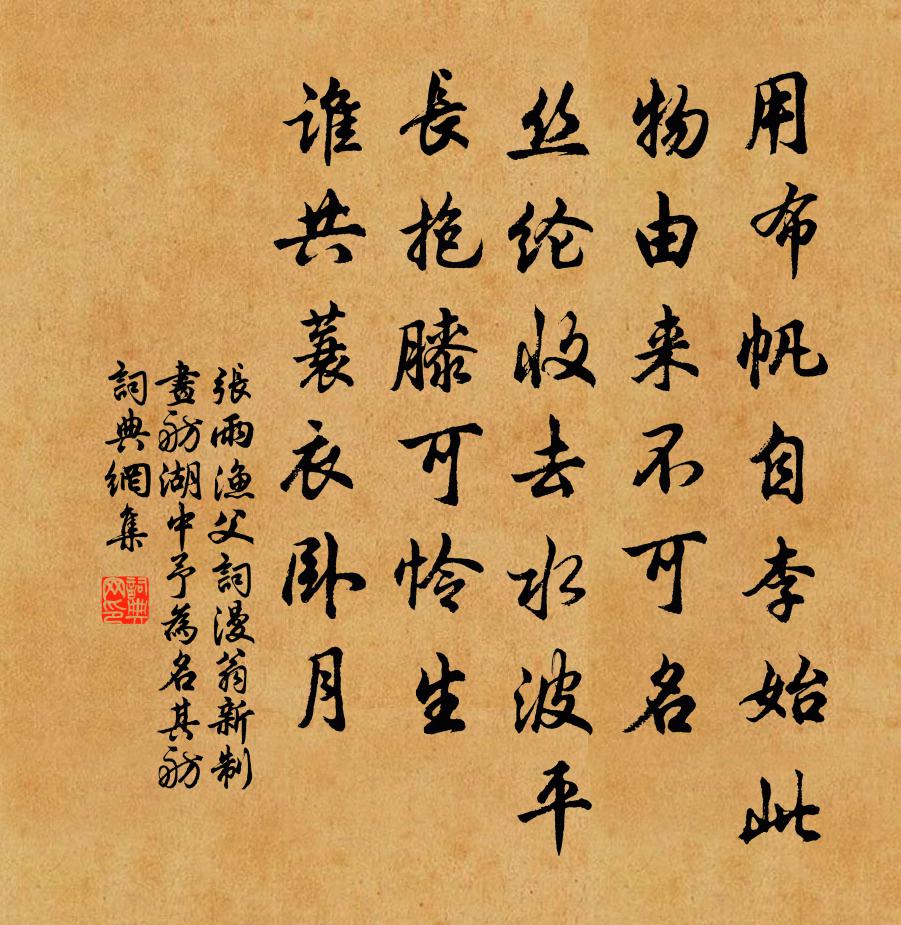 用布帆自李始此
物由来不可名
丝纶收去水波平
長抱膝可怜生
谁共蓑衣卧月
張雨漁父詞漫翁新制
畫舫湖中予為名其舫
詞典網集
詞典網印